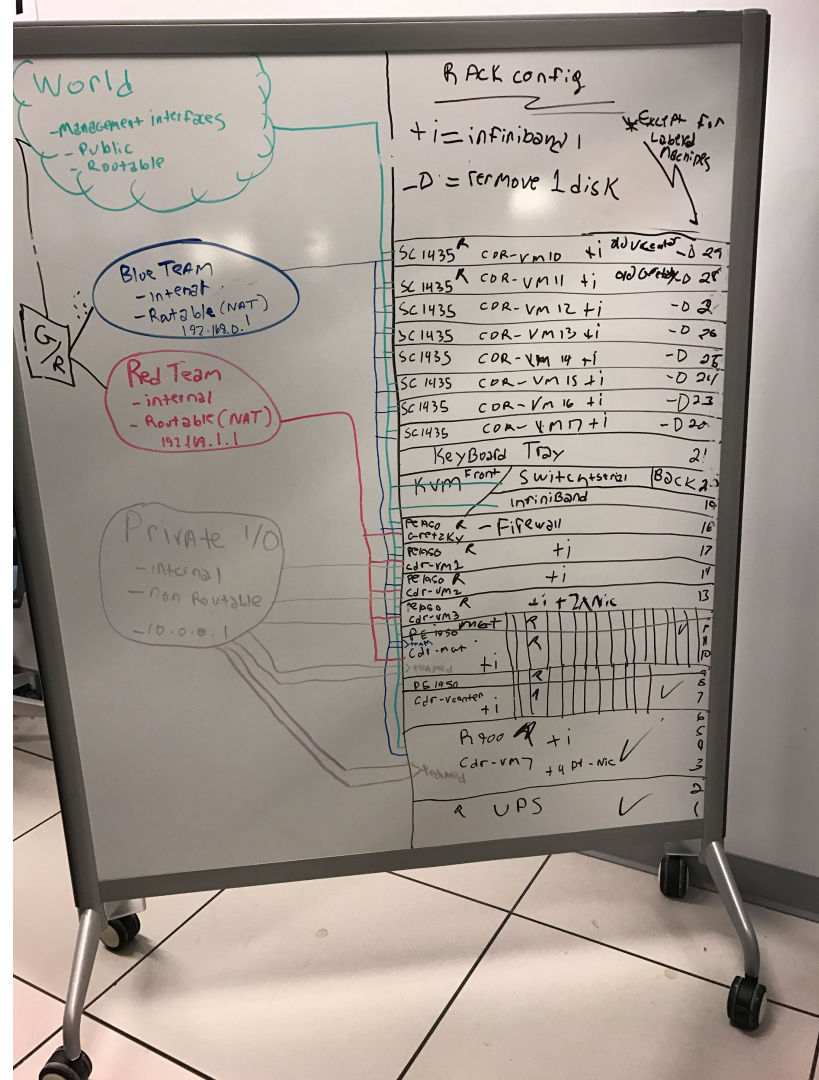 World
-Management interfaces
- Public
- Rootable
Blue Team
- internat
- Roatable (NAT)
192.168.0.1
G/R
Red Team
- internal
- Routable (NAT)
192.168.1.1
Private I/O
- internal
- non Routable
- 10.0.0.1
RAck config
+i = infiniband 1
-D = rermove 1 disk
*Except for
Labeled
Machines
SC1435 R CDR-Vm10 +i old vcenter -D 29
SC1435 R CDR-Vm11 +i old -D 28
SC1435 CDR-Vm 12 +i -D 2
SC1435 CDR-Vm13 +i -D 26
SC1435 CDR-Vm 14 +i -D 25
SC1435 CDR-Vm 15 +i -D 24
SC1435 CDR-Vm 16 +i -D 23
SC1435 CDR-VM17 +i -D 20
KeyBoard Tray 21
KVM Front Switch+serial Back 2
infiniBand 19
R - Firewall 18
Gretzky
PE1950 R +i 17
cdr-vm1
PE1950 R +i 14
cdr-vm2
PE1950 R +i +2xNic 13
cdr-vm3
PE 1950 mgt R
Cdr-mat R
+i 10
teamed
PE 1950 R 8
Cdr-vcenter 7
+i
6
R900 R +i 5
4
Cdr-vm7 +4 Pt-Nic 3
teamed
2
R UPS 1